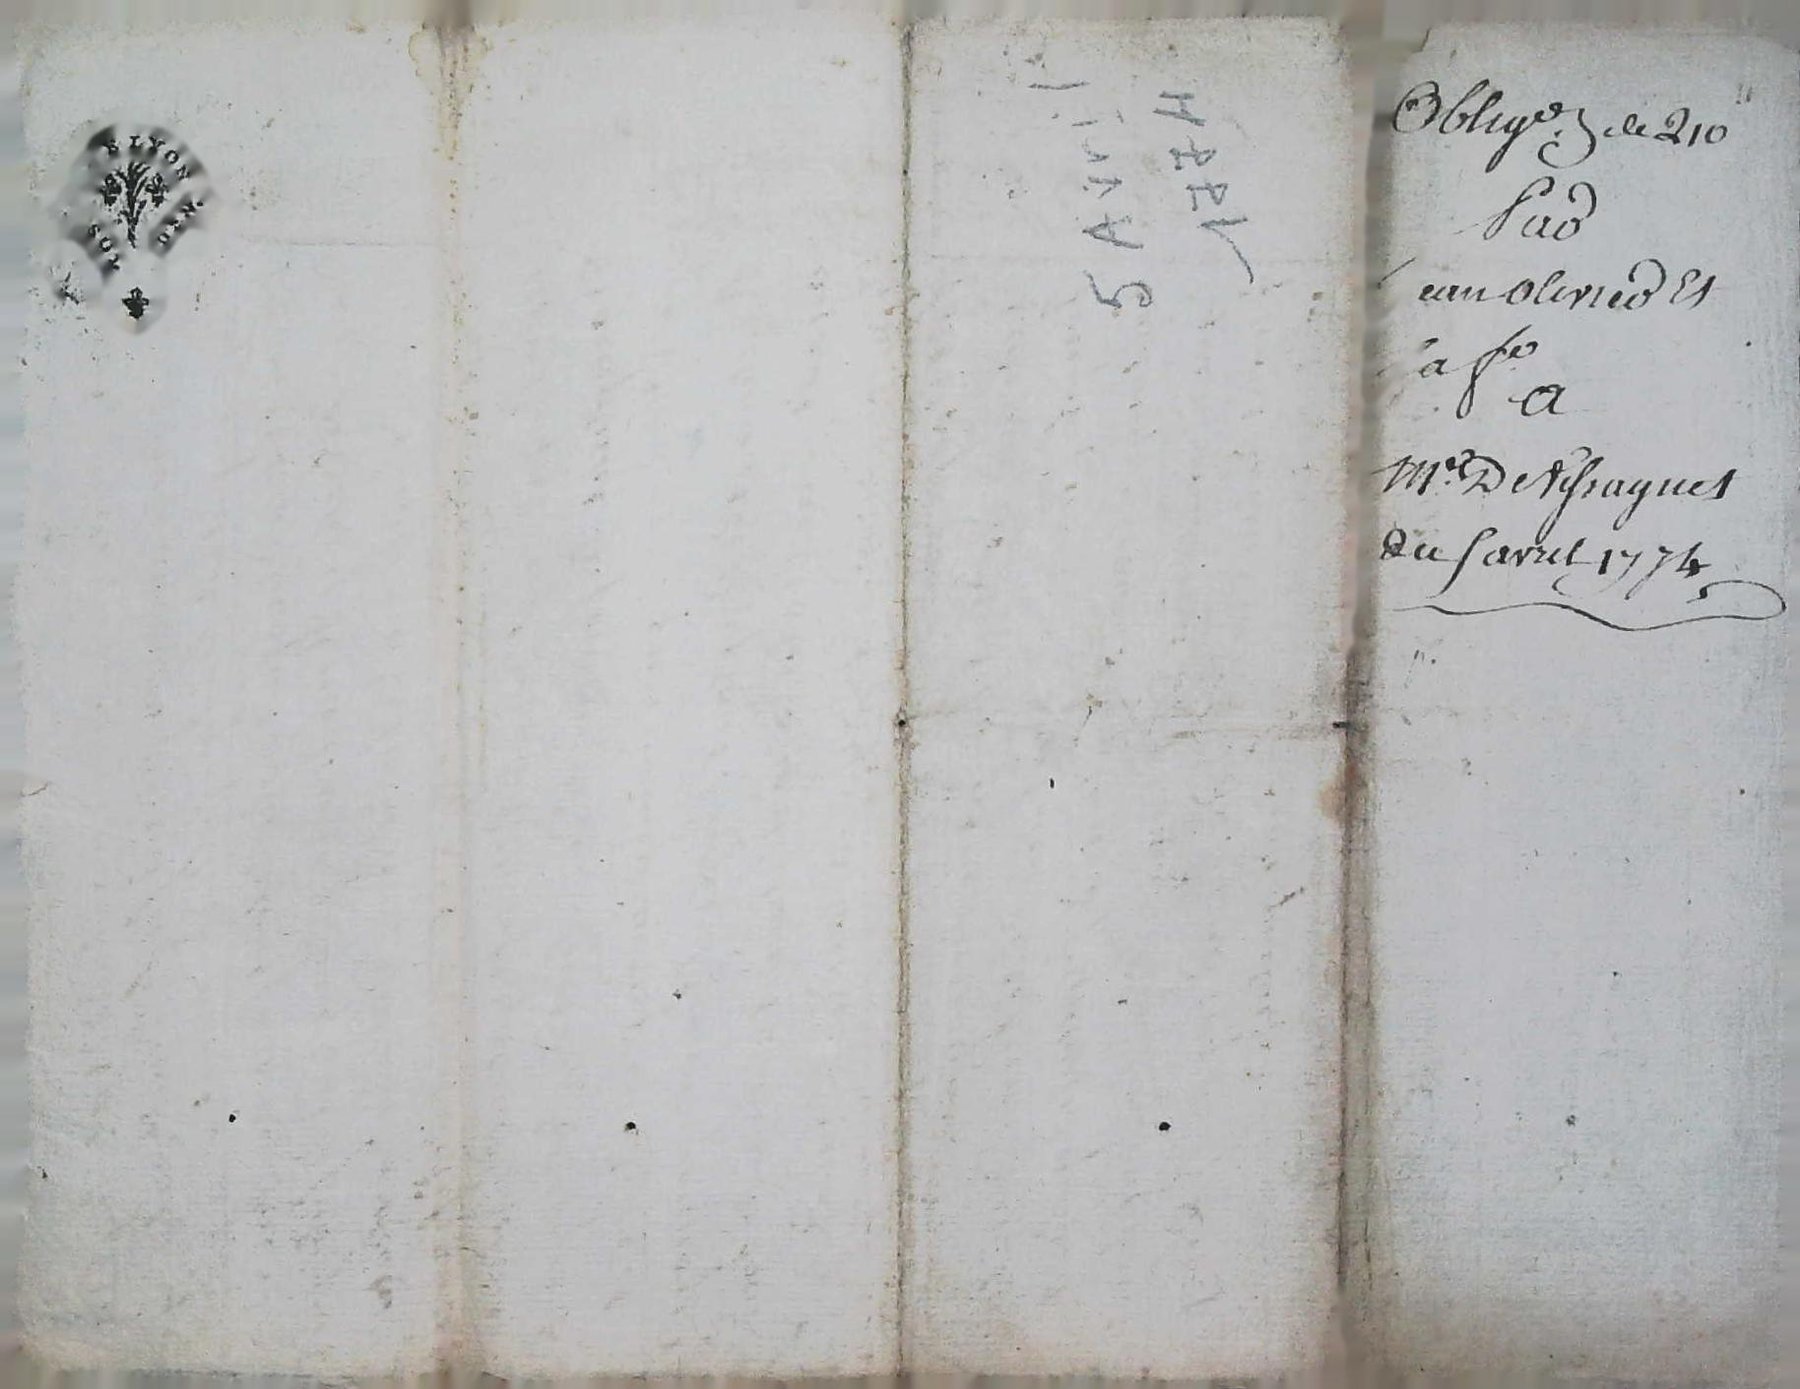 E LYON
5 Avril
1774
Oblig.on de 210
Par
Jean Olivier Et
Sa fe
a
Mr De
Du 5 avril 1774